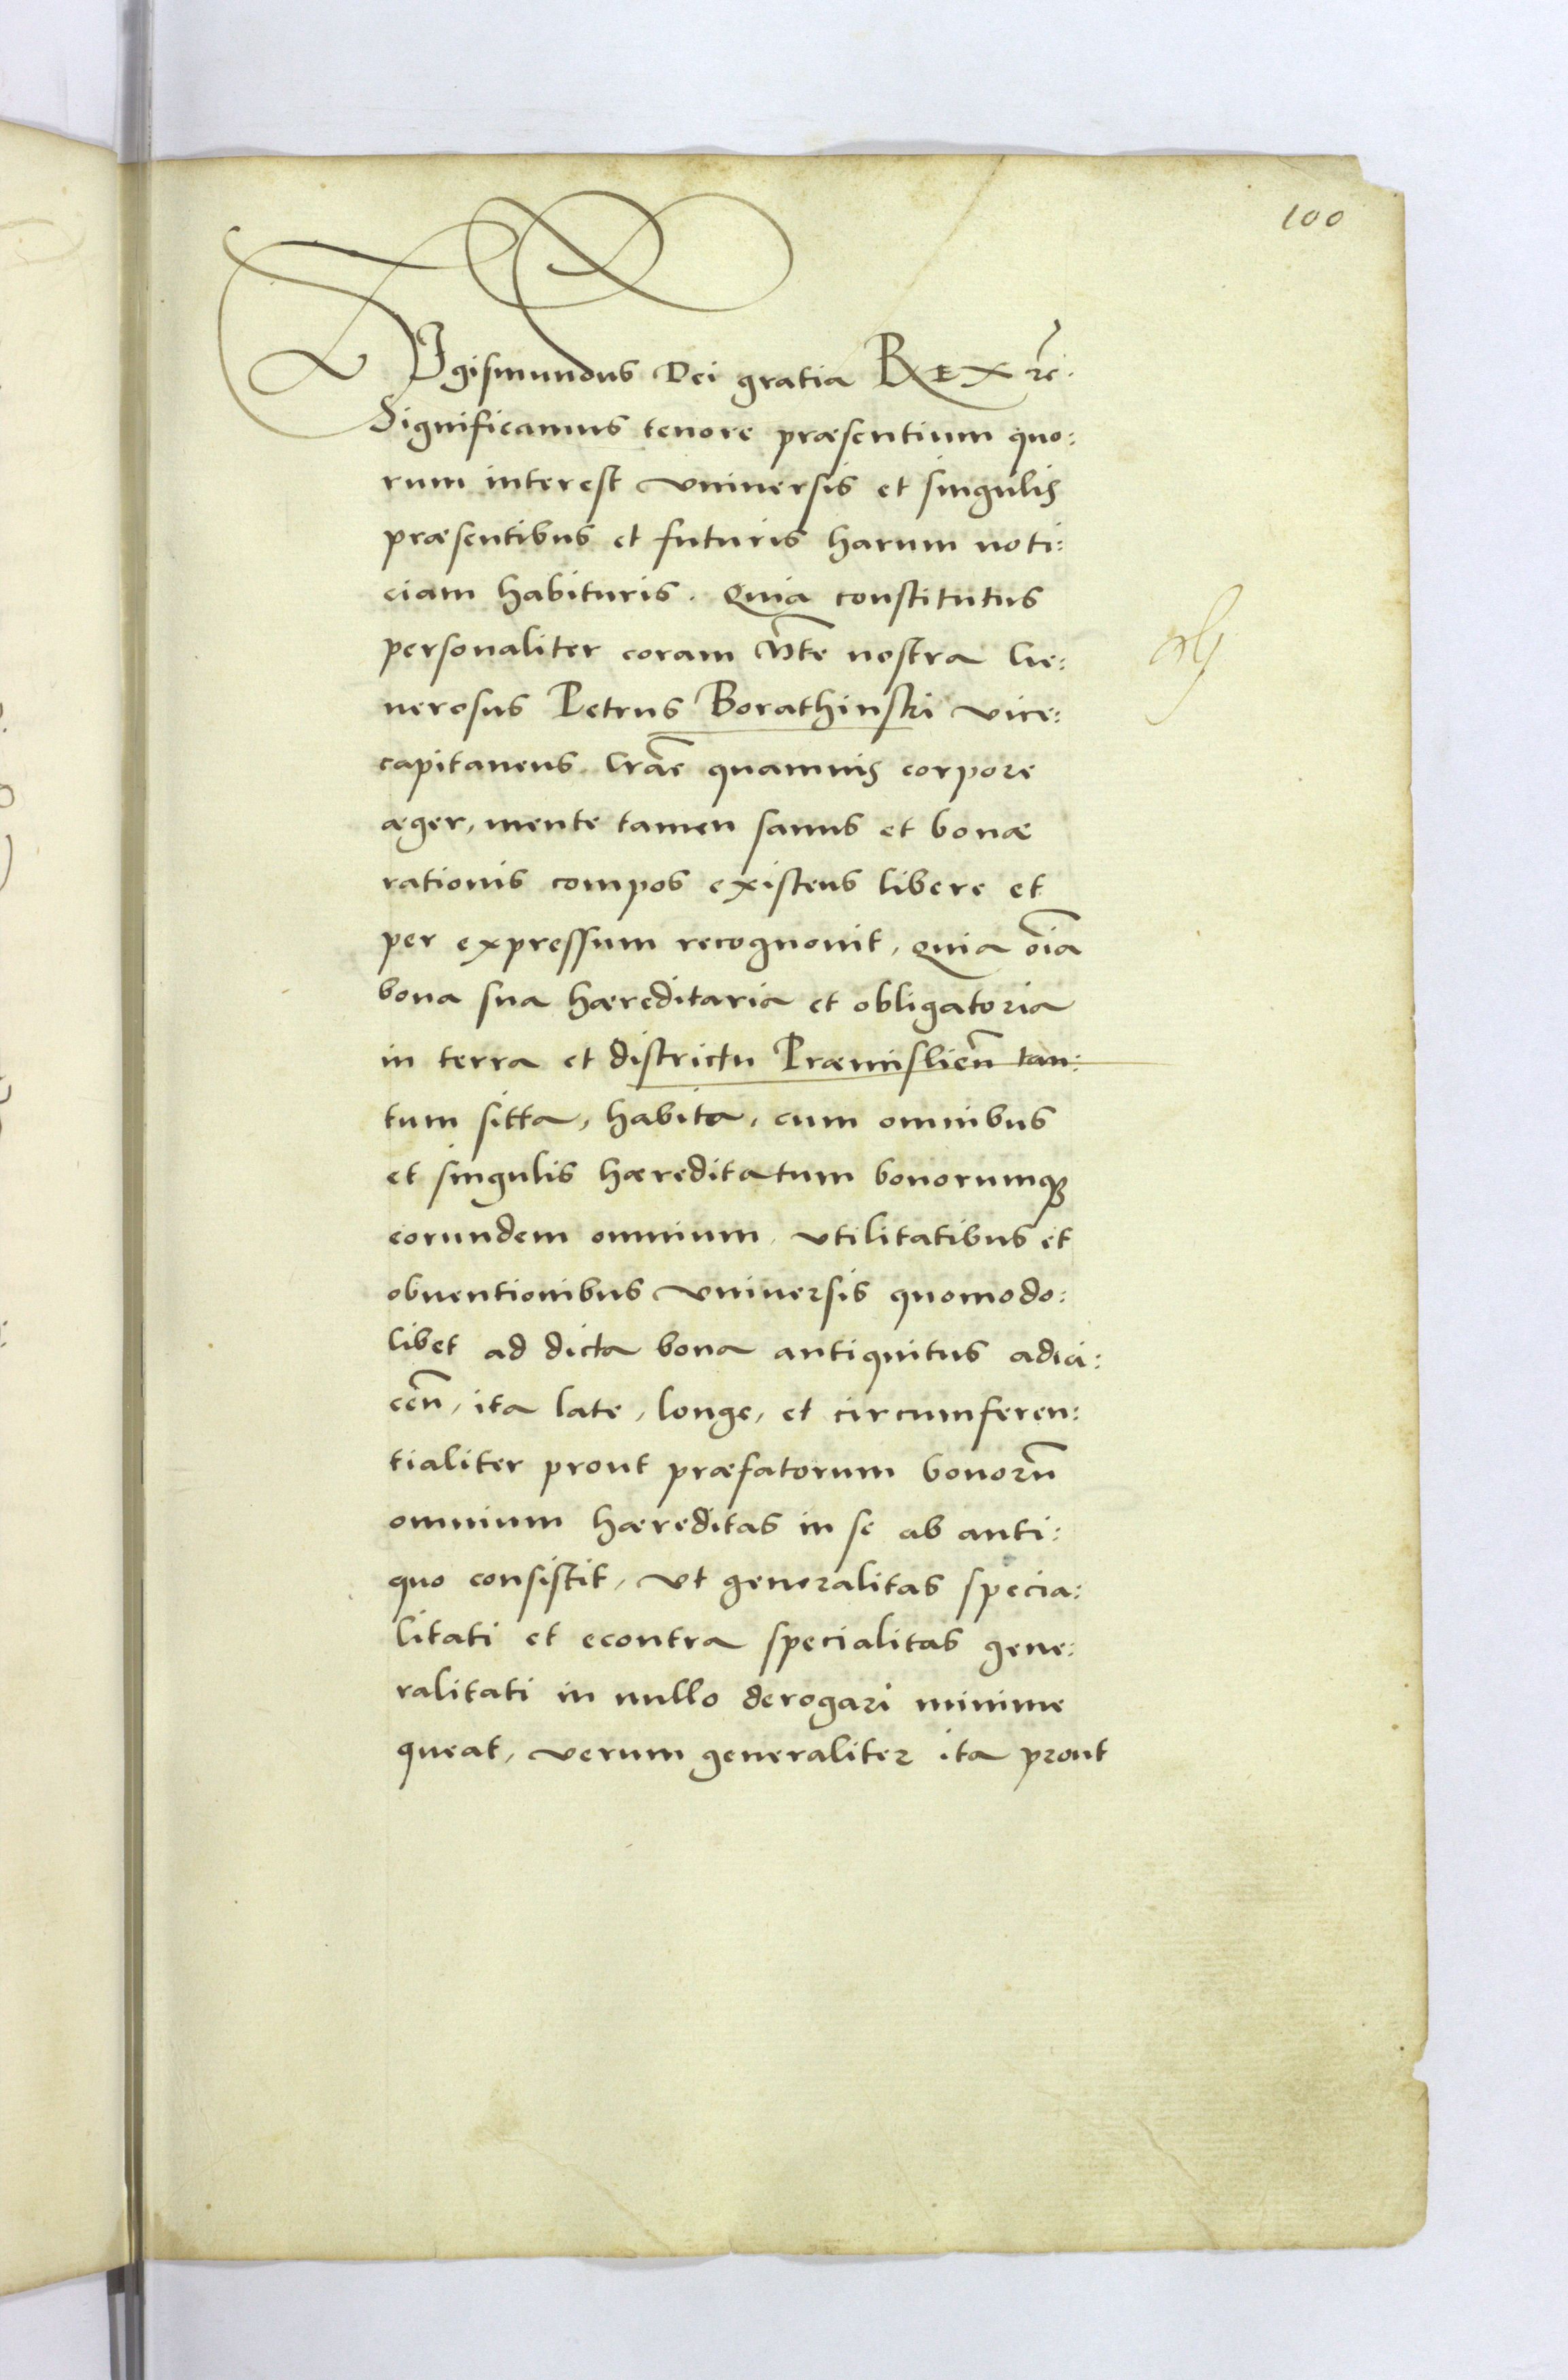 100
SIgismundus Dei gratia REX etc̃.
Significamus tenore præsentium quo:
rum interest vniuersis et singulis
præsentibus et futuris harum noti:
ciam habituris. Quia constitutus
personaliter coram Mte nostra Ge:
nerosus Petrus Borathinski vice:
capitaneus Cracẽ quamuis corpore
æger, mente tamen sanus et bonæ
rationis compos existens libere et
per expressum recognouit, quia oĩa
bona sua hæreditaria et obligatoria
in terra et districtu Præmisliẽn tan:
tum sitta, habita, cum omnibus
et singulis hæreditatum bonorumq3
eorundem omnium, vtilitatibus et
obuentionibus vniuersis quomodo:
libet ad dicta bona antiquitus adia:
cẽn, ita late, longe, et circumferen:
tialiter prout præfatorum bonorũ
omnium hæreditas in se ab anti:
quo consistit, vt generalitas specia:
litati et econtra specialitas gene:
ralitati in nullo derogari minime
queat, verum generaliter ita prout